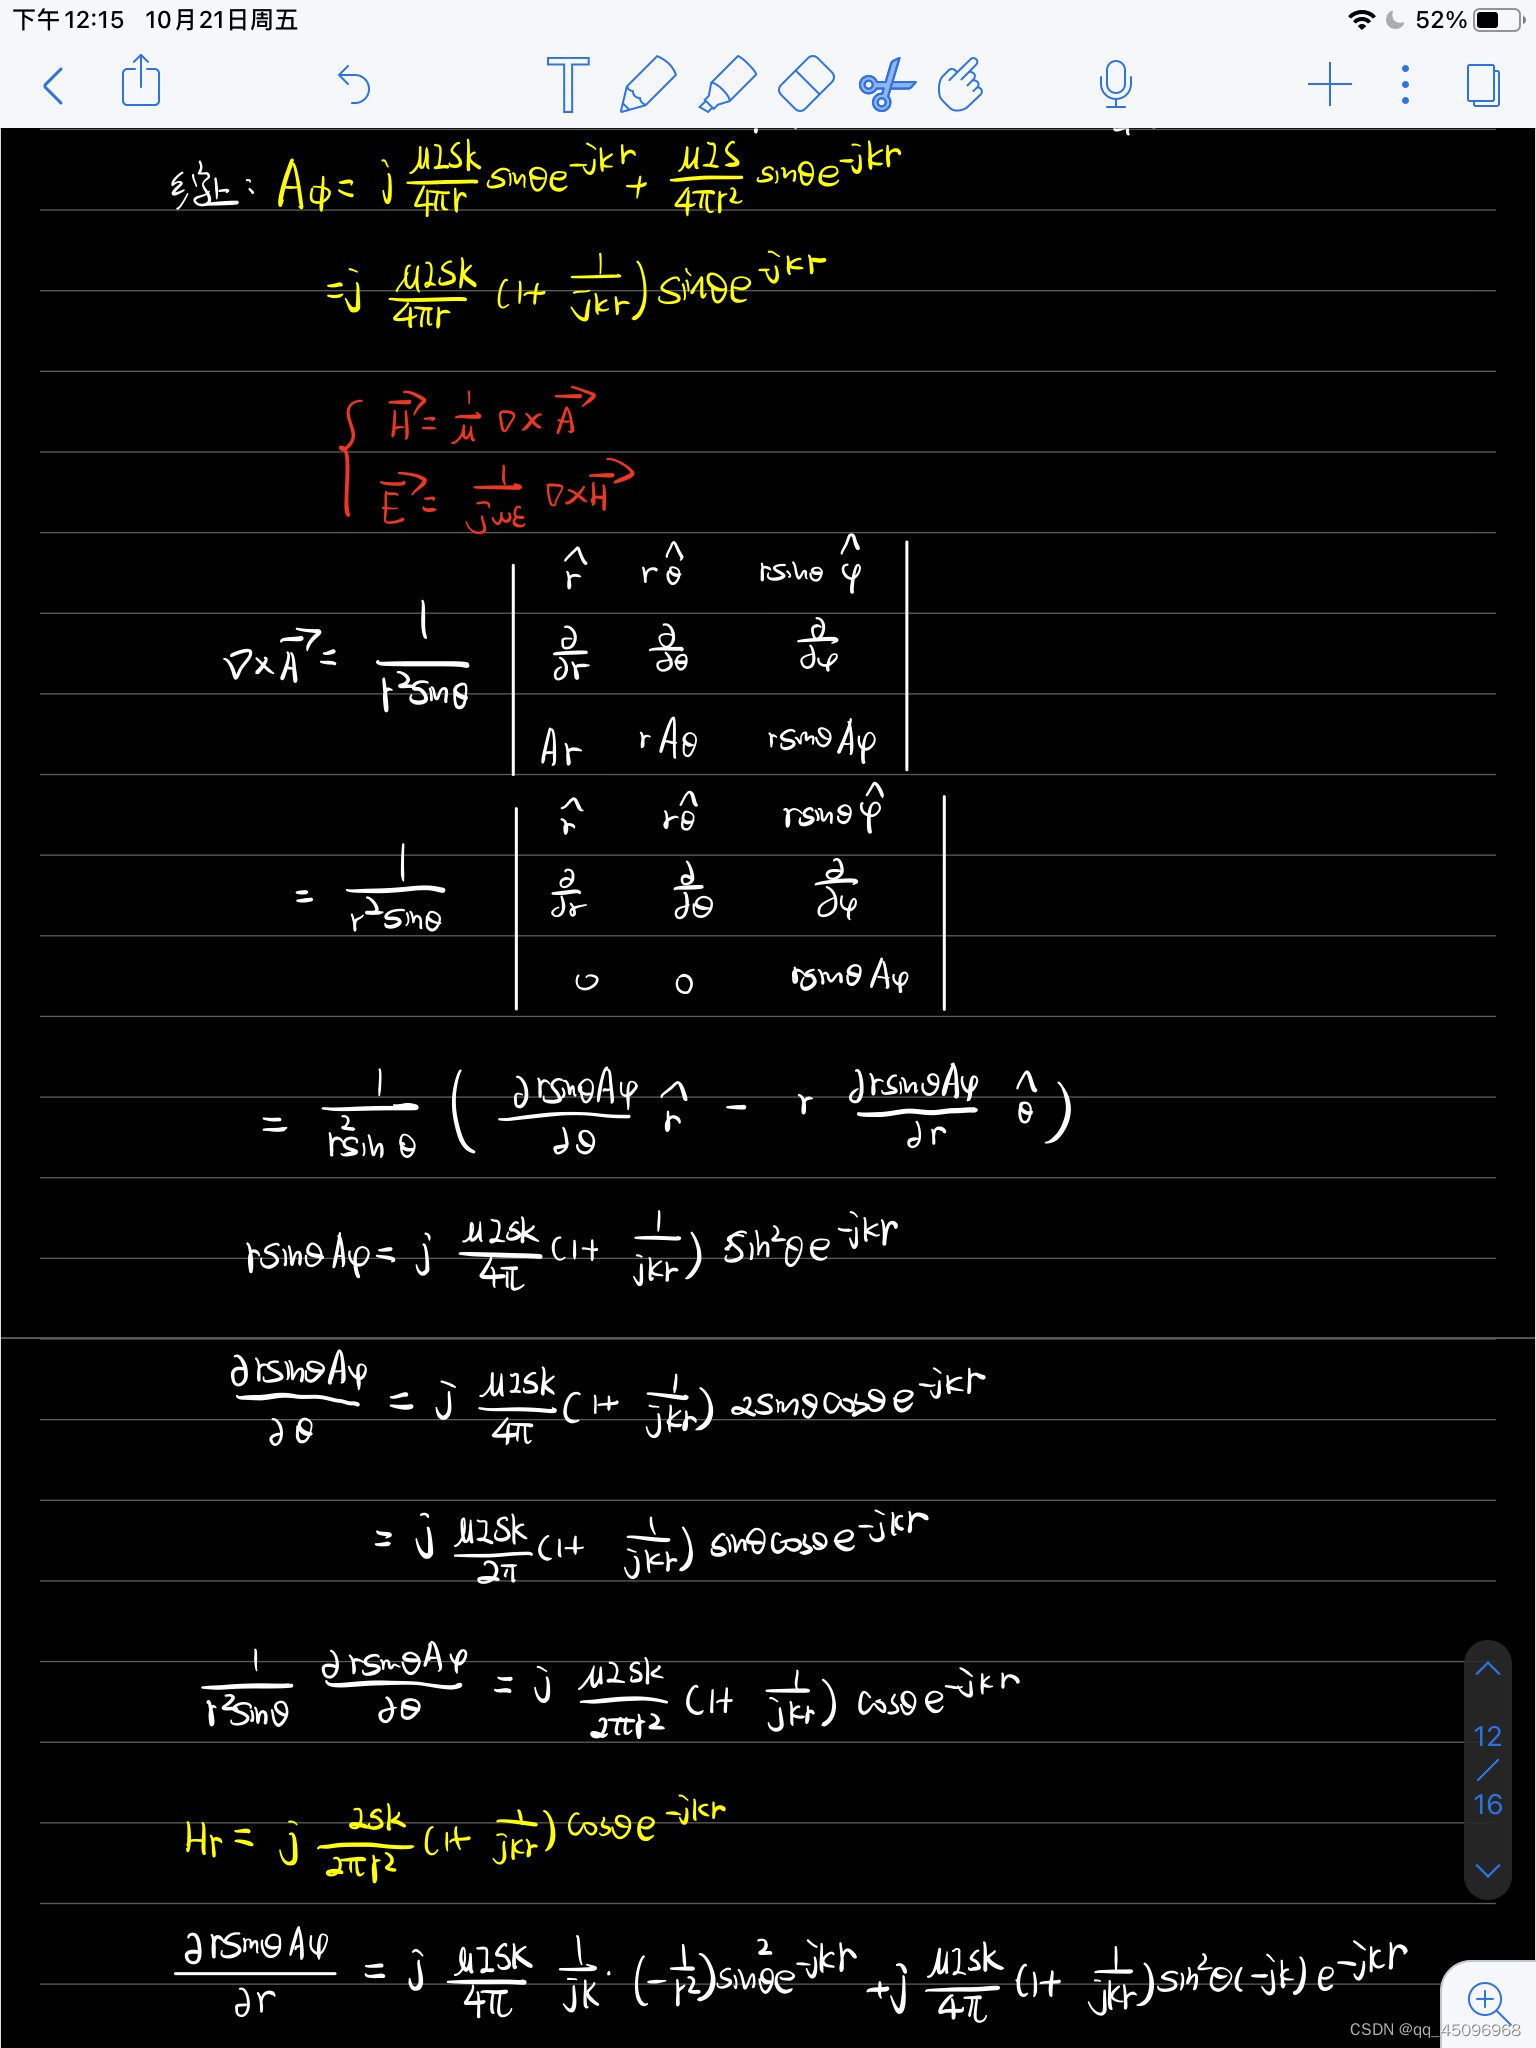 下午12:15 10月21日周五 52%
综上: Aφ = j μISk/4πr sinθe^-jkr + μIS/4πr² sinθe^-jkr
= j μISk/4πr (1+ 1/jkr) sinθe^-jkr
{ H⃗ = 1/μ ∇×A⃗
E⃗ = 1/jωε ∇×H⃗
∇×A⃗ = 1/r²sinθ | r̂ rθ̂ rsinθ φ̂ |
∂/∂r ∂/∂θ ∂/∂φ
Ar rAθ rsinθAφ
= 1/r²sinθ | r̂ rθ̂ rsinθφ̂ |
∂/∂r ∂/∂θ ∂/∂φ
0 0 rsinθAφ
= 1/r²sinθ ( ∂rsinθAφ/∂θ r̂ - r ∂rsinθAφ/∂r θ̂ )
rsinθAφ = j μISk/4π (1+ 1/jkr) sin²θe^-jkr
∂rsinθAφ/∂θ = j μISk/4π (1+ 1/jkr) 2sinθcosθe^-jkr
= j μISk/2π (1+ 1/jkr) sinθcosθe^-jkr
1/r²sinθ ∂rsinθAφ/∂θ = j μISk/2πr² (1+ 1/jkr) cosθe^-jkr
12
/
16
Hr = j ISk/2πr² (1+ 1/jkr) cosθe^-jkr
∂rsinθAφ/∂r = j μISk/4π 1/jk · (-1/r²)sin²θe^-jkr + j μISk/4π (1+ 1/jkr)sin²θ(-jk)e^-jkr
CSDN @qq_45096968